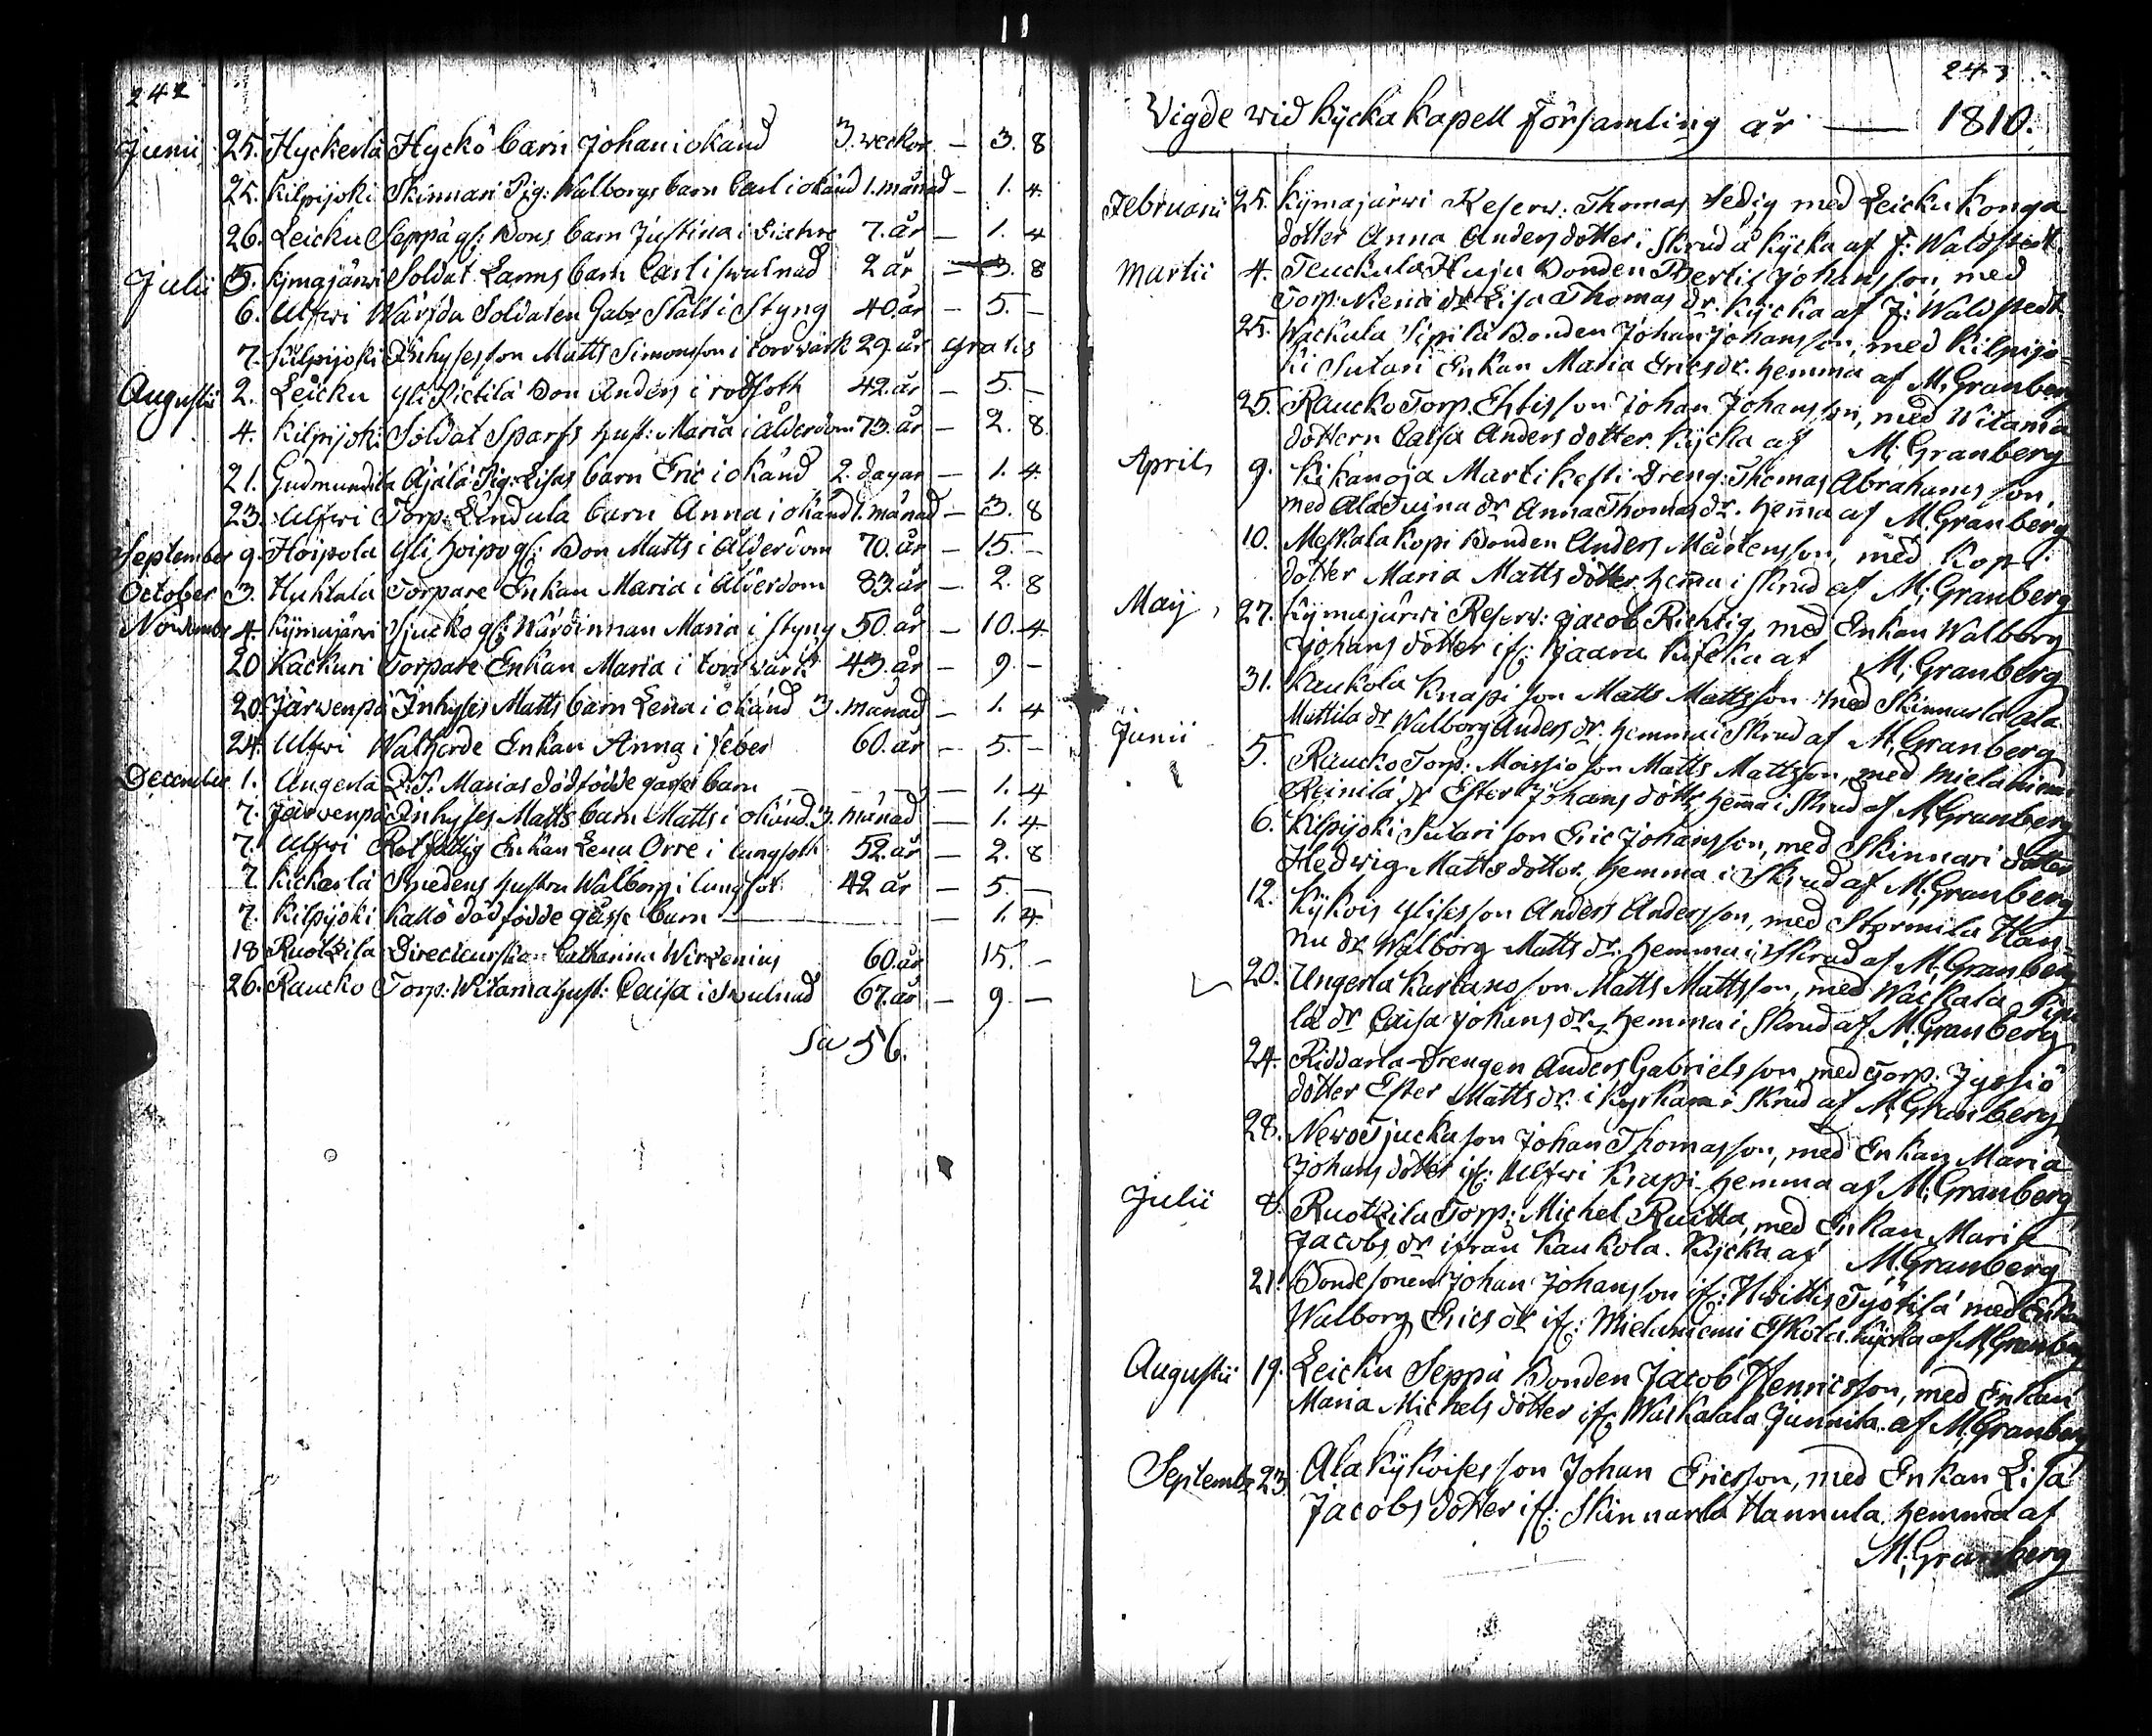 242
Junii 25. Hyckerlä Hyckö barn Johan i okänd 3. weckor — 3. 8
25. Kilpijoki Skinnari Pig: Walborgs barn Carl i okänd 1. månad — 1. 4.
26. Leicku Seppä gl: Bons barn Justina i 7. år — 1. 4
Julii 5. Kymajärwi Soldat Larms barn Carl i swulnad 2 år — 3. 8
6. Ulfwi Soldaten Gabr Stålt i Styng 40. år — 5. —
7. Kilpijoki Inhyses son Matts Simonsson i torrwärk 29. år gratis
Augusti 2. Leicku Yli Pietilä Bon Anders i rödsoth 42. år — 5. —
4. Kilpijoki Soldat Sparfs hust: Maria i ålderdom 73. år — 2. 8.
21. Gudmundila Äjälä Pig: Lisas barn Eric i okänd 2. dagar — 1. 4.
23. Ulfwi Torp: Lindula barn Anna i okänd 1. månad — 3. 8
September 9. Hoipola Yli Hoipo gl: Bon Matts i ålderdom 70. år — 15. —
October 3. Huhtala Torpare Enkan Maria i ålderdom 83. år — 2. 8
Novembr 4. Kymajärwi Sjucko gl: Wärdinnan Maria i styng 50. år — 10. 4
20 Kackuri Torpare Enkan Maria i torrwärk 43. år — 9. —
20. Järwenpä Inhyses Matts barn Lena i okänd 3. månad — 1. 4
24. Ulfwi Enkan Anna i feber 60. år — 5. —
December 1. Augerla Q: P: Marias dödfödde gosse barn — 1. 4
7. Järwenpä Inhyses Matts barn Matts i okänd 3. månad — 1. 4.
7. Ulfwi Rotfattig Enkan Lena Orre i lungsoth 52. år — 2. 8
7. Kickerlä Smedens hustru Walborg i lungsot 42 år — 5. —
7. Kilpijoki Kallo dödfödde gosse barn — 1. 4.
18 Ruotzila Directeurskan Catharina Wirzenius 60. år 15. —
26. Raucko Torp: Witama hust: Caisa i swulnad 67. år — 9. —
Sa 56.
243
Vigde wid Kycka Kapell Församling år — 1810.
Februarii 25. Kymajärwi Reserw: Thomas Sedig med Leicku Konga
dotter Anna Anders dotter i Skrud å Kycka af F: Waldstedt.
Martii 4. Teuckula Huju Bonden Bertil Johansson, med
Torp: Niemi dr Lisa Thomas dr. Kycka af F: Waldstedt.
25. Wäckula Sipilä Bonden Johan Johansson, med Kilpijo-
ki Sutari Enkan Maria Ericsdr. hemma af M: Granberg
25. Raucko Torp. Ehtis son Johan Johansson, med Witama
dottern Caisa Anders dotter. Kycka af M: Granberg
April 9. Kikanoja Marti Kesti Dreng: Thomas Abrahams son,
med Ala Tuina dr Anna Thomas dr. hema af M: Granberg
10. Meskala Kopi Bonden Anders Mårtensson, med Kopi
dotter Maria Matts dotter, hema i Skrud af M: Granberg
Maij 27. Kymajärwi Reserw: Jacob Richtig, med Enkan Walborg
Johans dotter if: Kycka af M: Granberg
31. Kaukola Knapi son Matts Mattsson med Skinnarla ala
Mattila dr Walborg Anders dr. hemma i Skrud af M: Granberg
Junii 5. Raucko Torp: Moissio son Matts Mattsson, med Mielaniemi
Reinilä dr Ester Johans dotter hema i Skrud af M: Granberg
6. Kilpijoki Sutari son Eric Johansson, med Skinnari dotter
Hedwig Matts dotter. hemma i Skrud af M: Granberg
12. Kykois Ylises son Anders Andersson, med Stormila Han-
nu dr Walborg Matts dr. hemma i Skrud af M: Granberg
20. Ungerla Karlano son Matts Mattsson, med Wäckala Pipu
la dr Caisa Johans dr, hemma i Skrud af M: Granberg
24. Riddarla Drengen Anders Gabriels son, med Torp.
dotter Ester Matts dr. i Kyrkan i Skrud af M: Granberg
28. Newos Tjucka son Johan Thomasson, med Enkan Maria
Johans dotter if: Ulfwi Knapi hemma af M: Granberg
Julii 8. Ruotzila Torp: Michel Ruitta, med Enkan Maria
Jacobs dr ifrån Kaukola. Kycka af M: Granberg
21. Bondesonen Johan Johansson if: Hvittis Työtilä med Enkan
Walborg Erics dr if: Mielaniemi Eskola. Kycka af M: Granberg
Augustii 19. Leicku Seppä Bonden Jacob Henricsson, med Enkan
Maria Michels dotter if: Waskalala Junnila. af M: Granberg
Septembr 23. Ala Kykoises son Johan Ericsson, med Enkan Lisa
Jacobs dotter if: Skinnarla Hannula. hemma af
M: Granberg